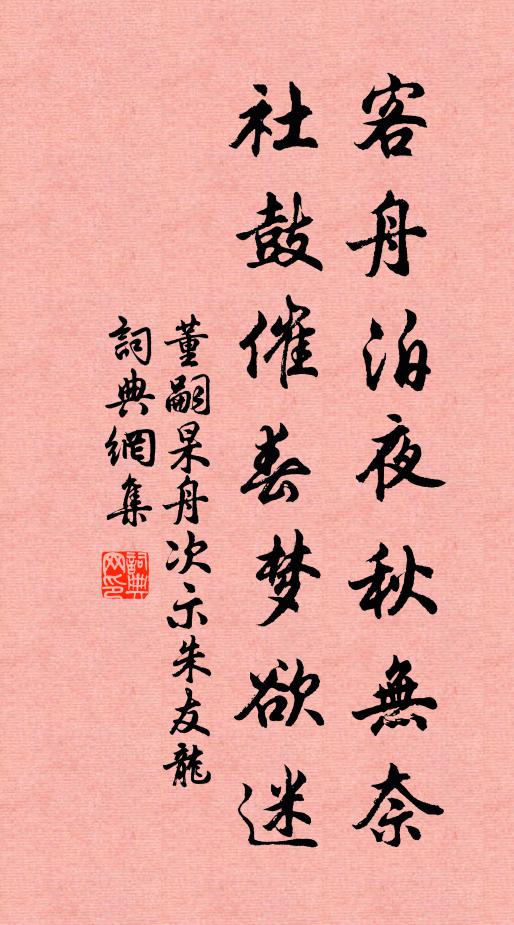 客舟泊夜秋無奈
社鼓催春梦欲迷
董嗣杲舟次示朱友龍
詞典網集
詞典网印